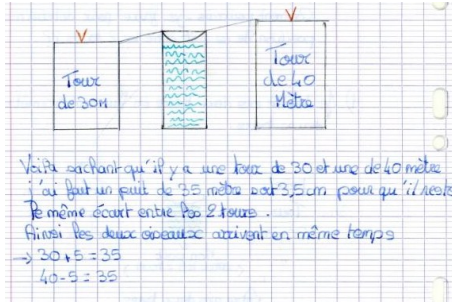 Tour
de 30M
Tour
de 40
Mètre
Voilà sachant qu'il y a une tour de 30 et une de 40 mètre
j'ai fait un puit de 35 mètre soit 3,5cm pour qu'il reste
le même écart entre les 2 tours.
Ainsi les deux oiseaux arrivent en même temps
→ 30+5=35
40-5=35